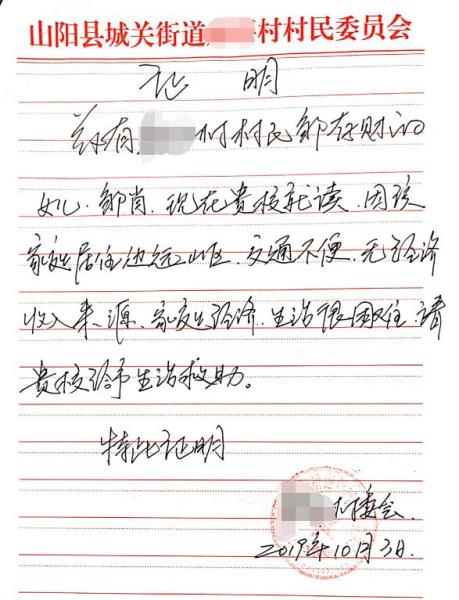 山阳县城关街道 村村民委员会
证 明
兹有 村村民邹存财的
女儿.邹肖.现在贵校就读.因该
家庭居住边远山区.交通不便.无经济
收入来源.家庭经济.生活很困难.请
贵校给予生活救助。
特此证明
村委会.
2019年10月3日.